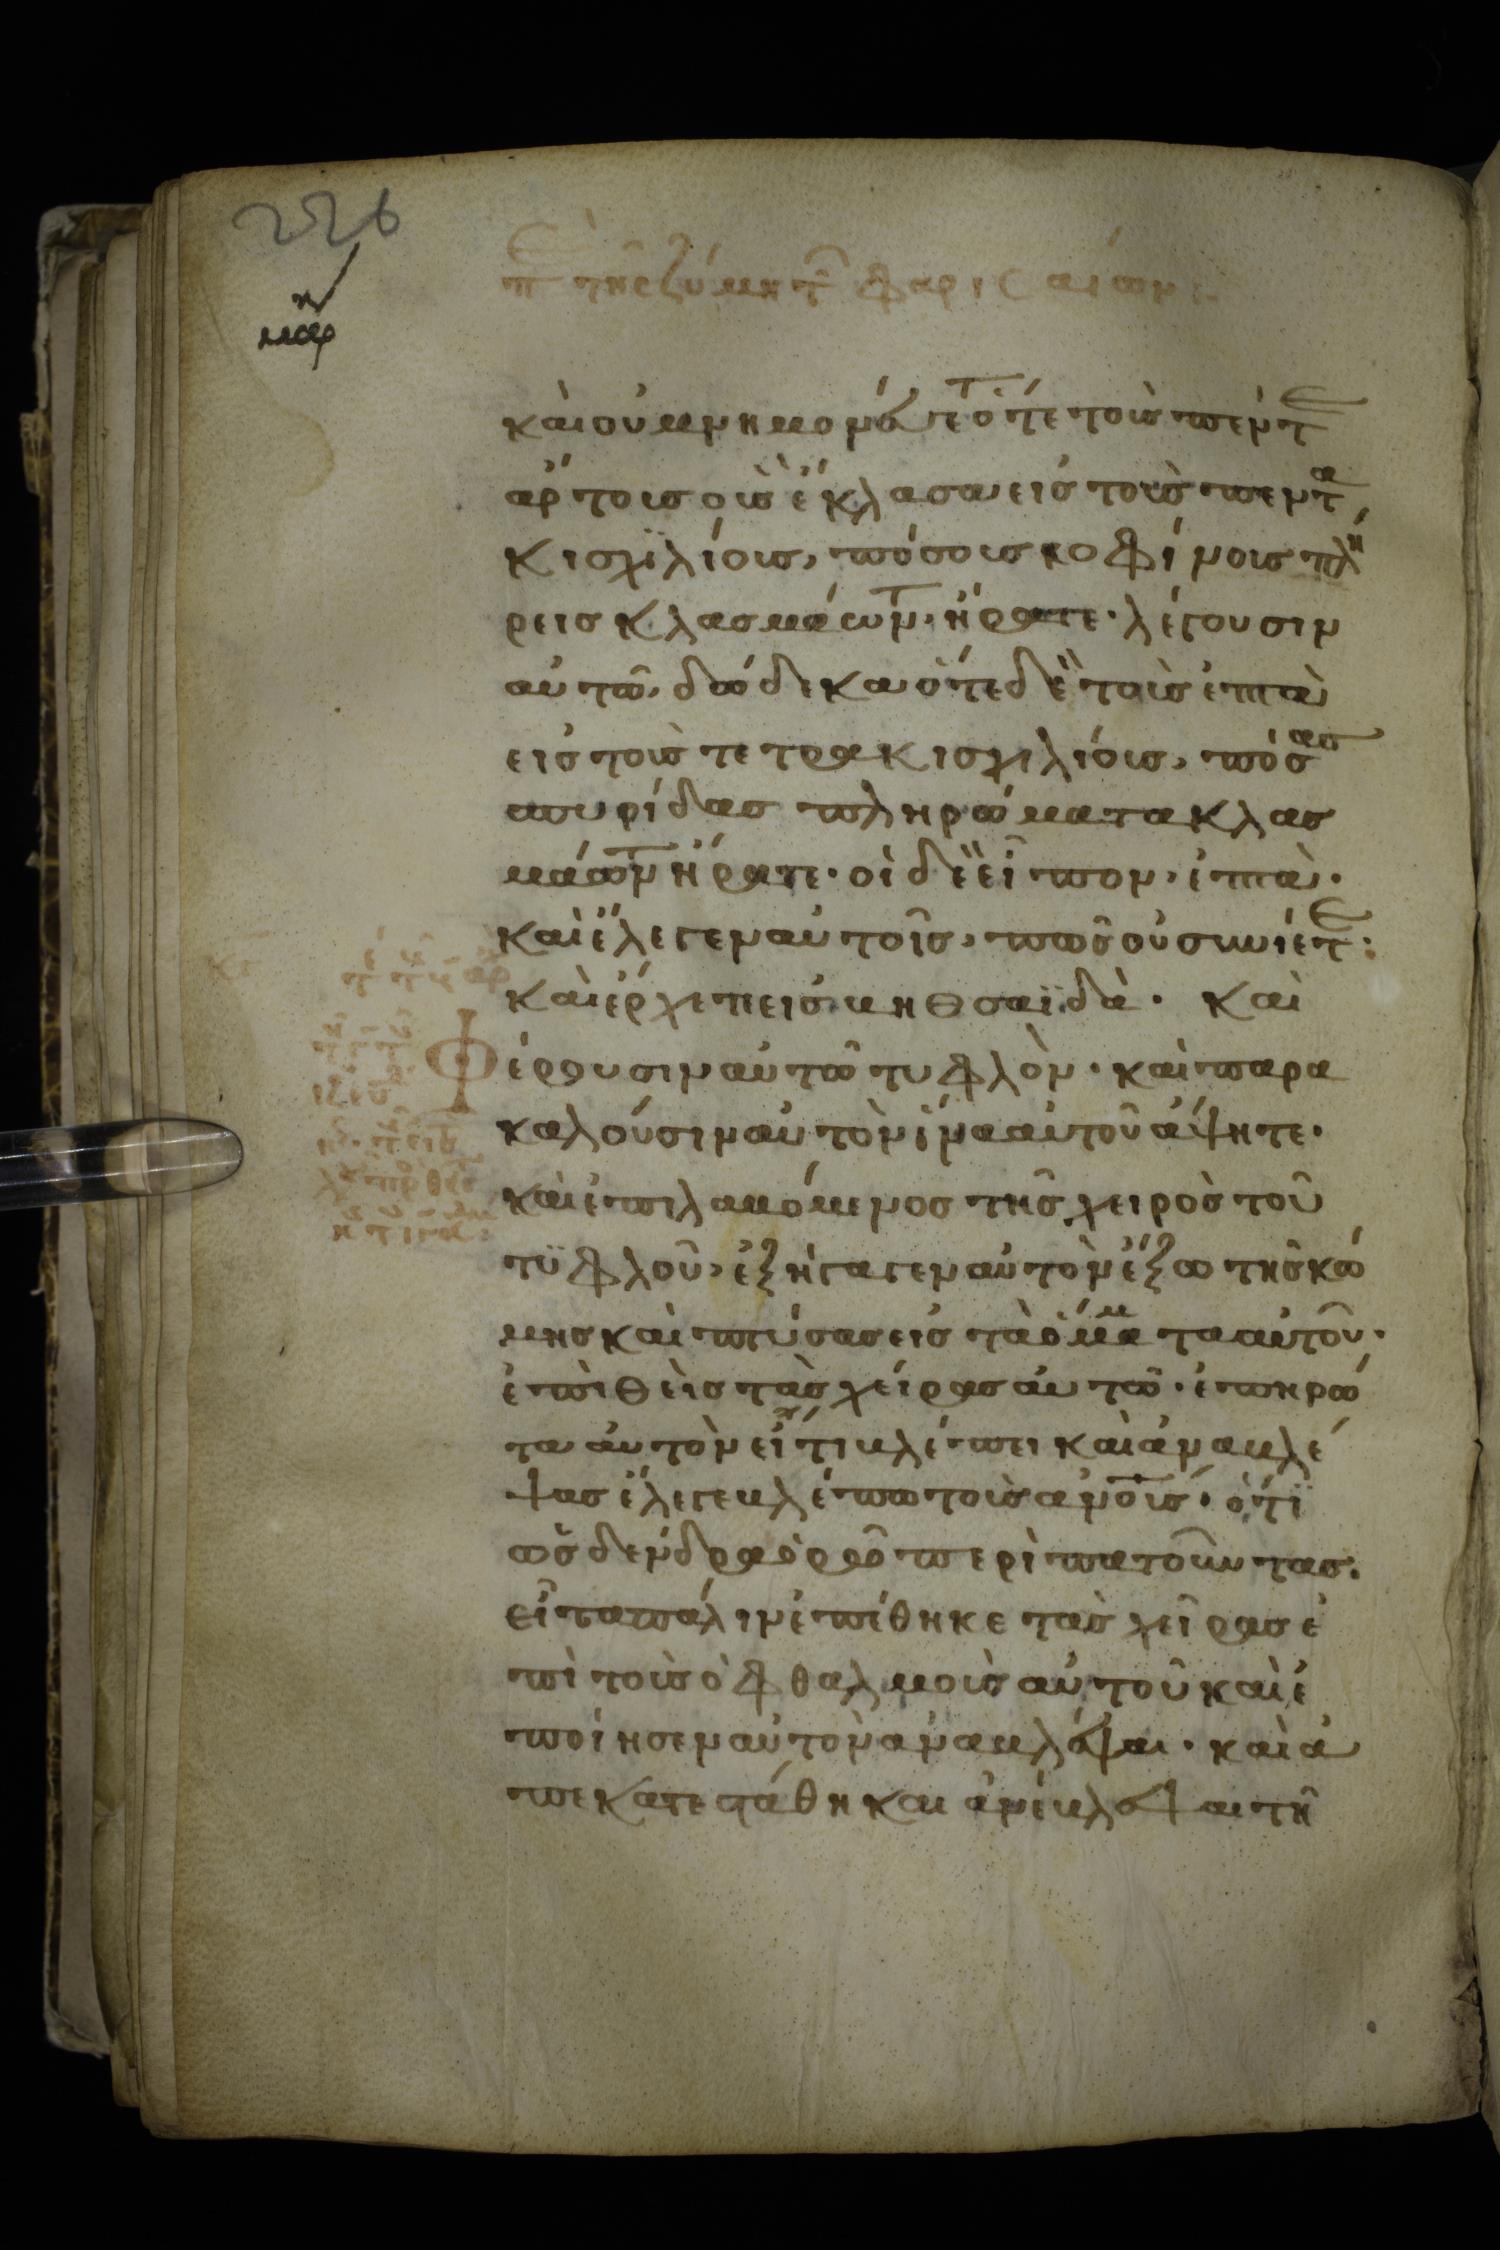 226
μαρ η
Περὶ τῆς ζύμης τῶν Φαρισαίων:
καὶ οὐ μνημονεύετε ὅτε τοὺς πέντε
ἄρτους οὓς ἔκλασα εἰς τοὺς πεντα
κισχιλίους, πόσους κοφίνους πλή
ρεις κλασμάτων ἤρατε· λέγουσιν
αὐτῶ, δώδεκα ὅτε δὲ τοὺς ἑπτὰ
εἰς τοὺς τετρακισχιλίους, πόσας
σπυρίδας πληρώματα κλασ
μάτων ἤρατε· οἱ δὲ εἶπον, ἑπτὰ·
καὶ ἔλεγεν αὐτοῖς, πῶς οὐ συνίετε:
καὶ ἔρχετε εἰς βηθσαϊδὰ· Καὶ
Φέρουσιν αὐτῶ τυφλὸν· καὶ παρα
καλοῦσιν αὐτὸν ἵνα αὐτοῦ ἅψητε·
καὶ ἐπιλαβόμενος τῆς χειρὸς τοῦ
τυφλοῦ, ἐξήγαγεν αὐτὸν ἔξω τῆς κώ
μης καὶ πτύσας εἰς τὰ ὄμματα αὐτοῦ·
ἐπιθεὶς τὰς χείρας αὐτῶ· ἐπηρώ
τα αὐτὸν εἴ τι βλέπει καὶ ἀναβλέ
ψας ἔλεγε βλέπω τοὺς ἀνους· ὅτι
ὡς δένδρα ὁρῶ περιπατοῦντας.
εἶτα πάλιν ἐπέθηκε τὰς χεῖρας ἐ
πὶ τοὺς ὀφθαλμοὺς αὐτοῦ καὶ ἐ
ποίησεν αὐτὸν ἀναβλέψαι· καὶ ἀ
πεκατεστάθη καὶ ἀνέβλεψαι τῆ